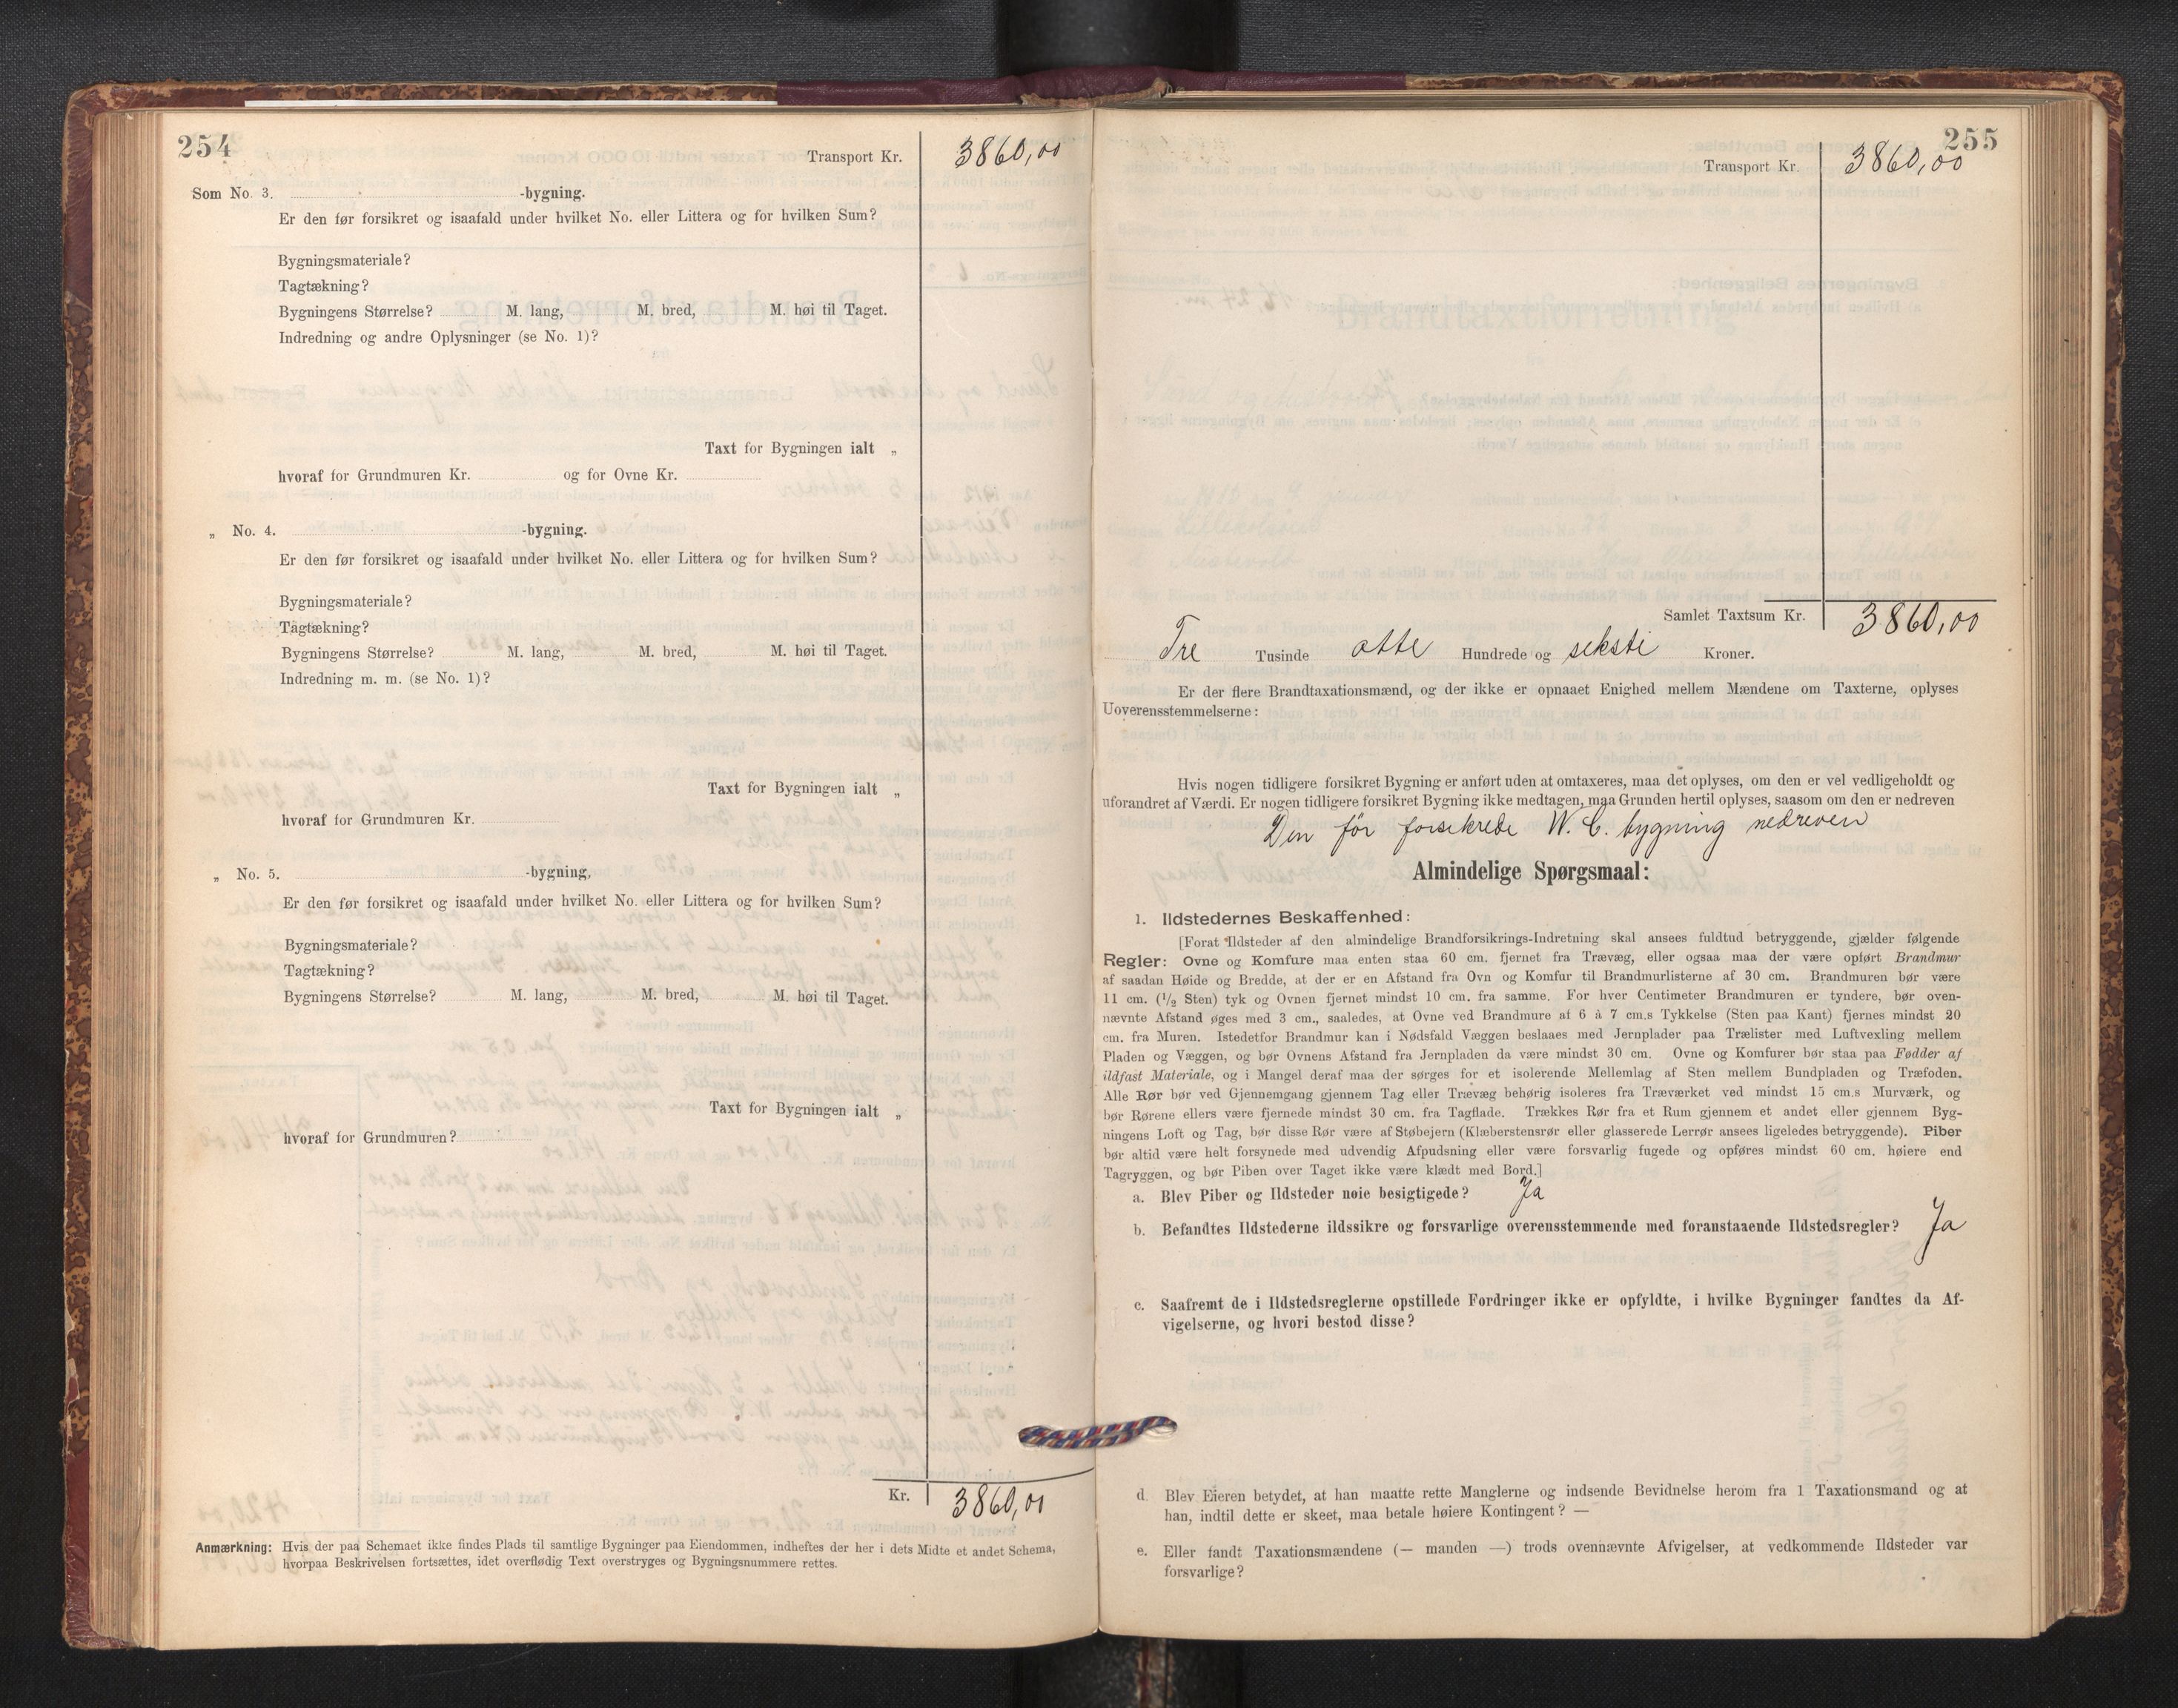 254
Transport Kr. 3860,00
Som No. 3. -bygning.
Er den før forsikret og isaafald under hvilket No. eller Littera og for hvilken Sum?
Bygningsmateriale?
Tagtækning?
Bygningens Størrelse? M. lang, M. bred, M. høi til Taget.
Indredning og andre Oplysninger (se No. 1)?
Taxt for Bygningen ialt „
hvoraf for Grundmuren Kr. og for Ovne Kr.
„ No. 4. -bygning.
Er den før forsikret og isaafald under hvilket No. eller Littera og for hvilken Sum?
Bygningsmateriale?
Tagtækning?
Bygningens Størrelse? M. lang, M. bred, M. høi til Taget.
Indredning m. m. (se No. 1)?
Taxt for Bygningen ialt „
hvoraf for Grundmuren Kr.
„ No. 5. -bygning,
Er den før forsikret og isaafald under hvilket No. eller Littera og for hvilken Sum?
Bygningsmateriale?
Tagtækning?
Bygningens Størrelse? M. lang, M. bred, M. høi til Taget.
Taxt for Bygningen ialt „
hvoraf for Grundmuren?
Kr. 3860,00
Anmærkning: Hvis der paa Schemaet ikke findes Plads til samtlige Bygninger paa Eiendommen, indheftes der her i dets Midte et andet Schema,
hvorpaa Beskrivelsen fortsættes, idet overflødig Text overstryges og Bygningsnummere rettes.
255
Transport Kr. 3860,00
Samlet Taxtsum Kr. 3860,00
Tre Tusinde otte Hundrede og seksti Kroner.
Er der flere Brandtaxationsmænd, og der ikke er opnaaet Enighed mellem Mændene om Taxterne, oplyses
Uoverensstemmelserne:
Hvis nogen tidligere forsikret Bygning er anført uden at omtaxeres, maa det oplyses, om den er vel vedligeholdt og
uforandret af Værdi. Er nogen tidligere forsikret Bygning ikke medtagen, maa Grunden hertil oplyses, saasom om den er nedreven
Den før forsikrede W. C. bygning nedreven
Almindelige Spørgsmaal:
1. Ildstedernes Beskaffenhed:
[Forat Ildsteder af den almindelige Brandforsikrings-Indretning skal ansees fuldtud betryggende, gjælder følgende
Regler: Ovne og Komfure maa enten staa 60 cm. fjernet fra Trævæg, eller ogsaa maa der være opført Brandmur
af saadan Høide og Bredde, at der er en Afstand fra Ovn og Komfur til Brandmurlisterne af 30 cm. Brandmuren bør være
11 cm. (1/2 Sten) tyk og Ovnen fjernet mindst 10 cm. fra samme. For hver Centimeter Brandmuren er tyndere, bør oven-
nævnte Afstand øges med 3 cm., saaledes, at Ovne ved Brandmure af 6 à 7 cm.s Tykkelse (Sten paa Kant) fjernes mindst 20
cm. fra Muren. Istedetfor Brandmur kan i Nødsfald Væggen beslaaes med Jernplader paa Trælister med Luftvexling mellem
Pladen og Væggen, og bør Ovnens Afstand fra Jernpladen da være mindst 30 cm. Ovne og Komfurer bør staa paa Fødder af
ildfast Materiale, og i Mangel deraf maa der sørges for et isolerende Mellemlag af Sten mellem Bundpladen og Træfoden.
Alle Rør bør ved Gjennemgang gjennem Tag eller Trævæg behørig isoleres fra Træværket ved mindst 15 cm.s Murværk, og
bør Rørene ellers være fjernede mindst 30 cm. fra Tagflade. Trækkes Rør fra et Rum gjennem et andet eller gjennem Byg-
ningens Loft og Tag, bør disse Rør være af Støbejern (Klæberstensrør eller glasserede Lerrør ansees ligeledes betryggende). Piber
bør altid være helt forsynede med udvendig Afpudsning eller være forsvarlig fugede og opføres mindst 60 cm. høiere end
Tagryggen, og bør Piben over Taget ikke være klædt med Bord.]
a. Blev Piber og Ildsteder nøie besigtigede? Ja
b. Befandtes Ildstederne ildssikre og forsvarlige overensstemmende med foranstaaende Ildstedsregler? Ja
c. Saafremt de i Ildstedsreglerne opstillede Fordringer ikke er opfyldte, i hvilke Bygninger fandtes da Af-
vigelserne, og hvori bestod disse?
d. Blev Eieren betydet, at han maatte rette Manglerne og indsende Bevidnelse herom fra 1 Taxationsmand og at
han, indtil dette er skeet, maa betale høiere Kontingent? —
e. Eller fandt Taxationsmændene (— manden —) trods ovennævnte Afvigelser, at vedkommende Ildsteder var
forsvarlige?